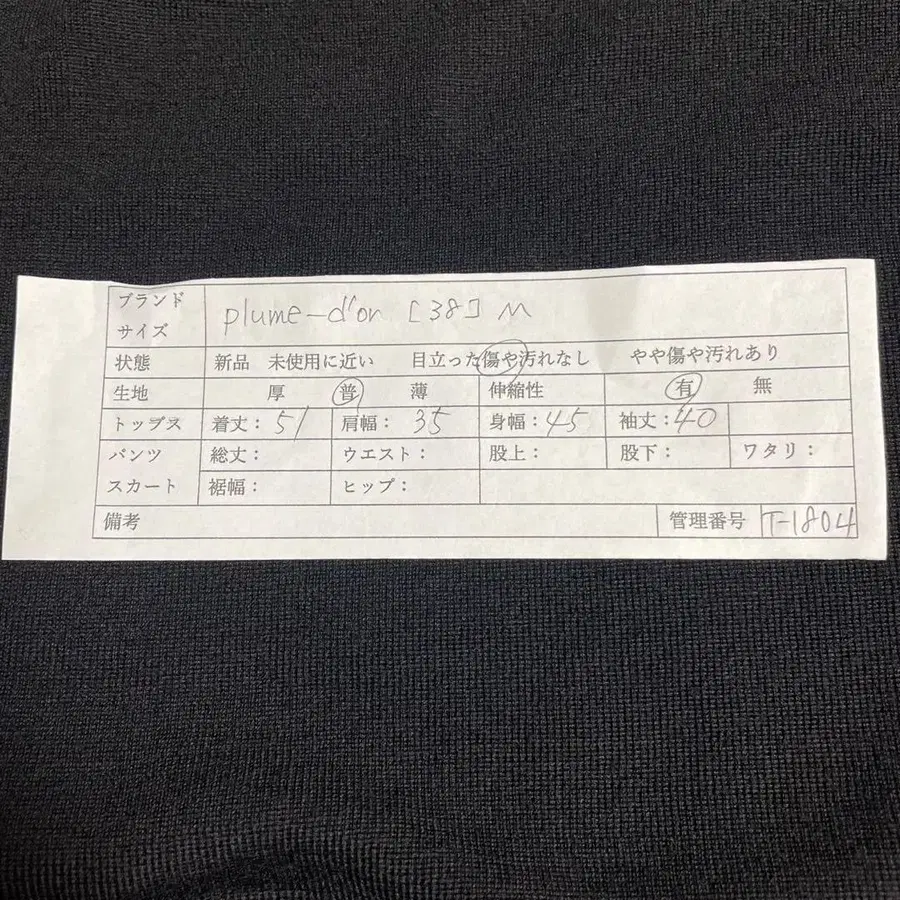 ブランド
サイズ
plume-d'or [38] M
状態 新品 未使用に近い 目立った傷や汚れなし やや傷や汚れあり
生地 厚 普 薄 伸縮性 有 無
トップス 着丈：51 肩幅：35 身幅：45 袖丈：40
パンツ 総丈： ウエスト： 股上： 股下： ワタリ：
スカート 裾幅： ヒップ：
備考 管理番号 T-1804